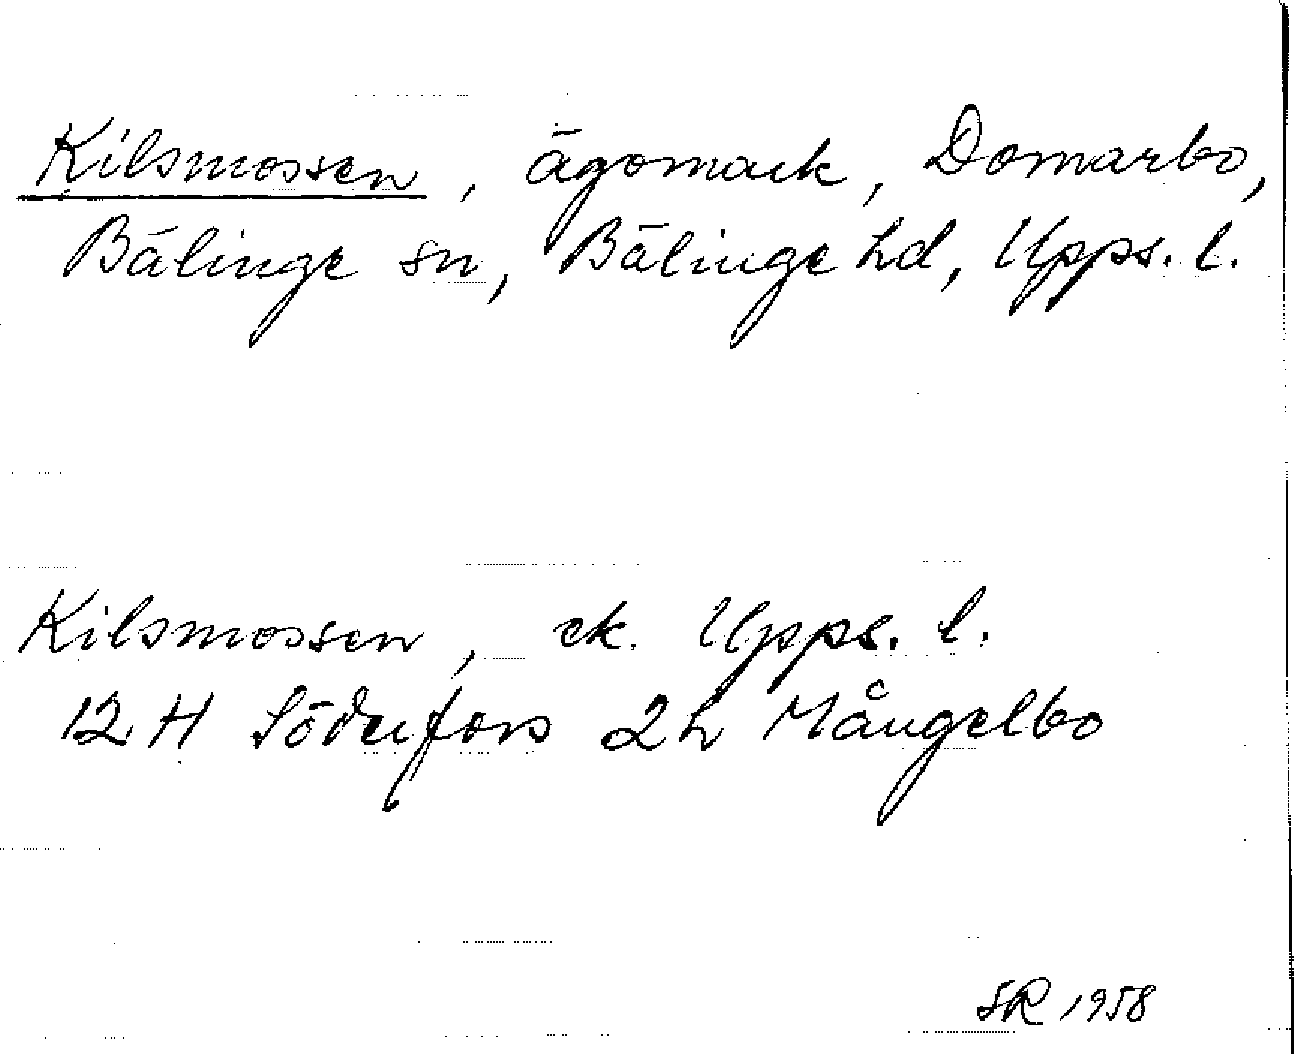 Kilsmossen, ägomark, Domarbo,
Bälinge sn, Bälinge hd, Upps. l.
Kilsmossen, ek. Upps. l.
12 H Söderfors 2h Mångelbo
SR 1958